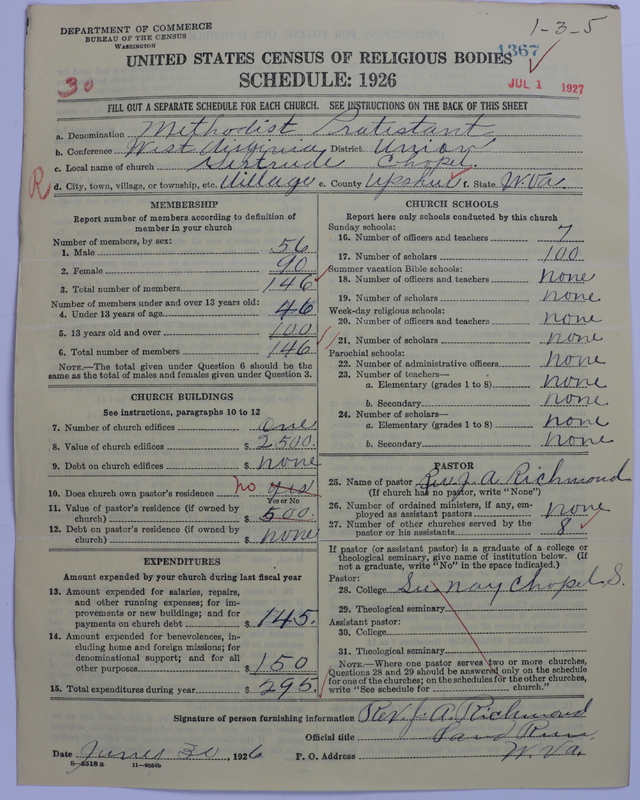 DEPARTMENT OF COMMERCE
BUREAU OF THE CENSUS
WASHINGTON
1-3-5
1367
UNITED STATES CENSUS OF RELIGIOUS BODIES
SCHEDULE: 1926
30
JUL 1 1927
FILL OUT A SEPARATE SCHEDULE FOR EACH CHURCH. SEE INSTRUCTIONS ON THE BACK OF THIS SHEET
a. Denomination Methodist Protestant
b. Conference West Virginia District Union
c. Local name of church Gertrude Chapel.
R d. City, town, village, or township, etc. Village e. County Upshur f. State W.Va.
MEMBERSHIP
Report number of members according to definition of
member in your church
Number of members, by sex:
1. Male 56
2. Female 90
3. Total number of members 146
Number of members under and over 13 years old:
4. Under 13 years of age 46
5. 13 years old and over 100
6. Total number of members 146
NOTE.—The total given under Question 6 should be
the same as the total of males and females given under Question 3.
CHURCH BUILDINGS
See instructions, paragraphs 10 to 12
7. Number of church edifices one
8. Value of church edifices $ 2500.
9. Debt on church edifices $ none
10. Does church own pastor's residence no yes
Yes or No
11. Value of pastor's residence (if owned by
church) $ 500.
12. Debt on pastor's residence (if owned by
church) $ none
EXPENDITURES
Amount expended by your church during last fiscal year
13. Amount expended for salaries, repairs,
and other running expenses; for im-
provements or new buildings; and for
payments on church debt $ 145.
14. Amount expended for benevolences, in-
cluding home and foreign missions; for
denominational support; and for all
other purposes $ 150
15. Total expenditures during year $ 295.
CHURCH SCHOOLS
Report here only schools conducted by this church
Sunday schools:
16. Number of officers and teachers 7
17. Number of scholars 100
Summer vacation Bible schools:
18. Number of officers and teachers none
19. Number of scholars none
Week-day religious schools:
20. Number of officers and teachers none
21. Number of scholars none
Parochial schools:
22. Number of administrative officers none
23. Number of teachers—
a. Elementary (grades 1 to 8) none
b. Secondary none
24. Number of scholars—
a. Elementary (grades 1 to 8) none
b. Secondary none
PASTOR
25. Name of pastor Rev. J. A. Richmond
(If church has no pastor, write "None")
26. Number of ordained ministers, if any, em-
ployed as assistant pastors none
27. Number of other churches served by the
pastor or his assistants 8
If pastor (or assistant pastor) is a graduate of a college or
theological seminary, give name of institution below. (If
not a graduate, write "No" in the space indicated.)
Pastor:
28. College Chapel S.
29. Theological seminary
Assistant pastor:
30. College
31. Theological seminary
NOTE.—Where one pastor serves two or more churches,
Questions 28 and 29 should be answered only on the schedule
for one of the churches; on the schedules for the other churches,
write "See schedule for church."
Signature of person furnishing information Rev. J. A. Richmond
Official title Sand Run
Date June 30, 1926 P. O. Address W. Va.
8-5518 a 11-9054b